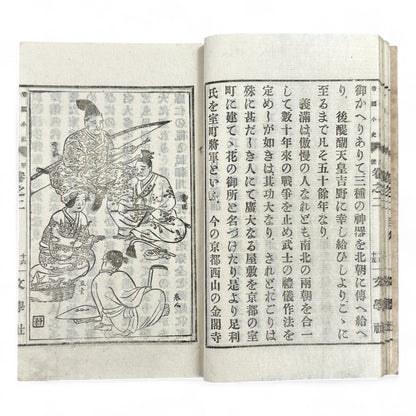 御かへりありて三種の神器を北朝に傳へ給へ
り、後醍醐天皇吉野に幸し給ひしよりこゝに
至るまで凡そ五十餘年なり
義滿は傲慢の人なれども南北の兩朝を合一
して數十年來の戰爭を止め武士の禮儀作法を
定めしが如きは其功大なりされどおごりは
殊に甚だしき人にて廣大なる屋敷を京都の室
町に建て、花の御所と名つけたり是より足利
氏を室町將軍といふ、今の京都西山の金閣寺
帝國小史
卷之二
文學社